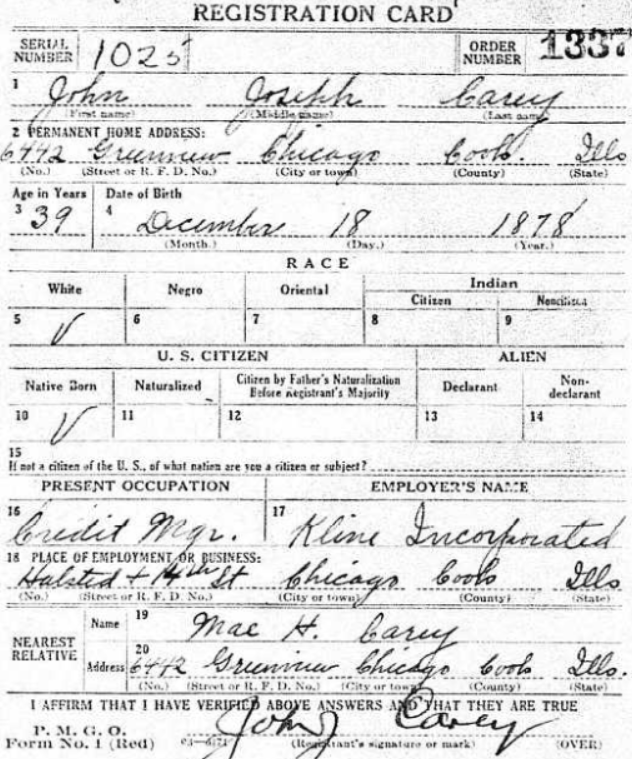 REGISTRATION CARD
SERIAL NUMBER 1025 ORDER NUMBER 1337
1 John Joseph Carey
(First name) (Middle name) (Last name)
2 PERMANENT HOME ADDRESS:
6442 Greenview Chicago Cook. Ills
(No.) (Street or R. F. D. No.) (City or town) (County) (State)
Age in Years Date of Birth
3 39 4 December 18 1878
(Month.) (Day.) (Year.)
RACE
White Negro Oriental Indian
Citizen Noncitizen
5 6 7 8 9
U. S. CITIZEN ALIEN
Native Born Naturalized Citizen by Father's Naturalization Before Registrant's Majority Declarant Non-declarant
10 11 12 13 14
15
If not a citizen of the U. S., of what nation are you a citizen or subject?
PRESENT OCCUPATION EMPLOYER'S NAME
16 Credit Mgr. 17 Kline Incorporated
18 PLACE OF EMPLOYMENT OR BUSINESS:
Halsted + St Chicago Cook Ills
(No.) (Street or R. F. D. No.) (City or town) (County) (State)
NEAREST RELATIVE Name 19 Mae H. Carey
Address 20 6442 Greenview Chicago Cook Ills.
(No.) (Street or R. F. D. No.) (City or town) (County) (State)
I AFFIRM THAT I HAVE VERIFIED ABOVE ANSWERS AND THAT THEY ARE TRUE
P. M. G. O.
Form No. 1 (Red) John J Carey
(Registrant's signature or mark) (OVER)